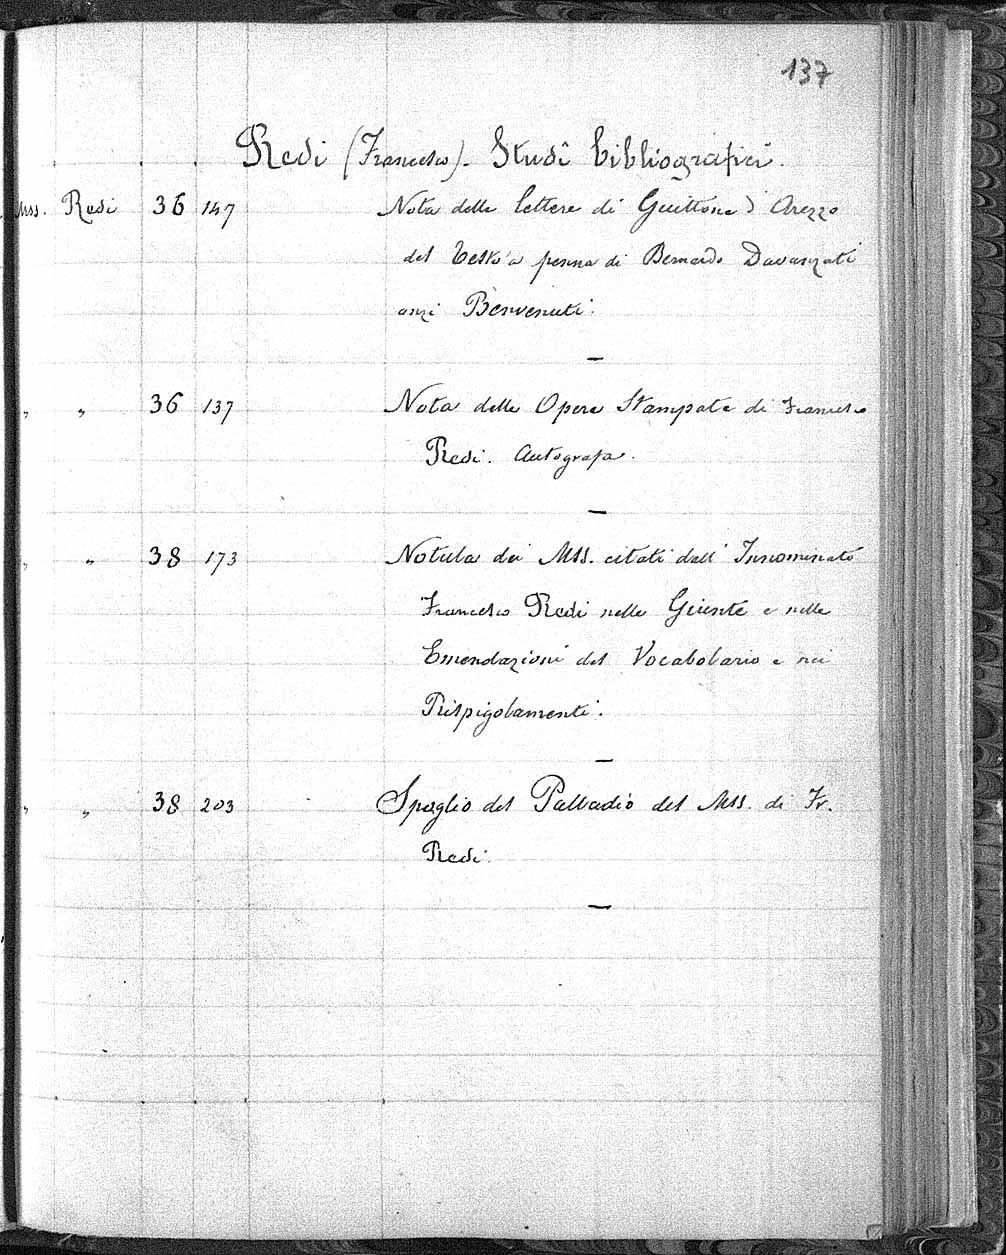 137
Redi (Francesco). Studî bibliografici.
Mss. Redi 36 147 Nota delle lettere di Guittone d'Arezzo
del testo a penna di Bernardo Davanzati
anzi Benvenuti.
" " 36 137 Nota delle Opere Stampate di Francesco
Redi. Autografa.
" " 38 173 Notula dei Mss. citati dall' Innominato
Francesco Redi nelle Giunte e nelle
Emendazioni del Vocabolario e nei
Rispigolamenti.
" " 38 203 Spoglio del Palladio del Mss. di Fr.
Redi.